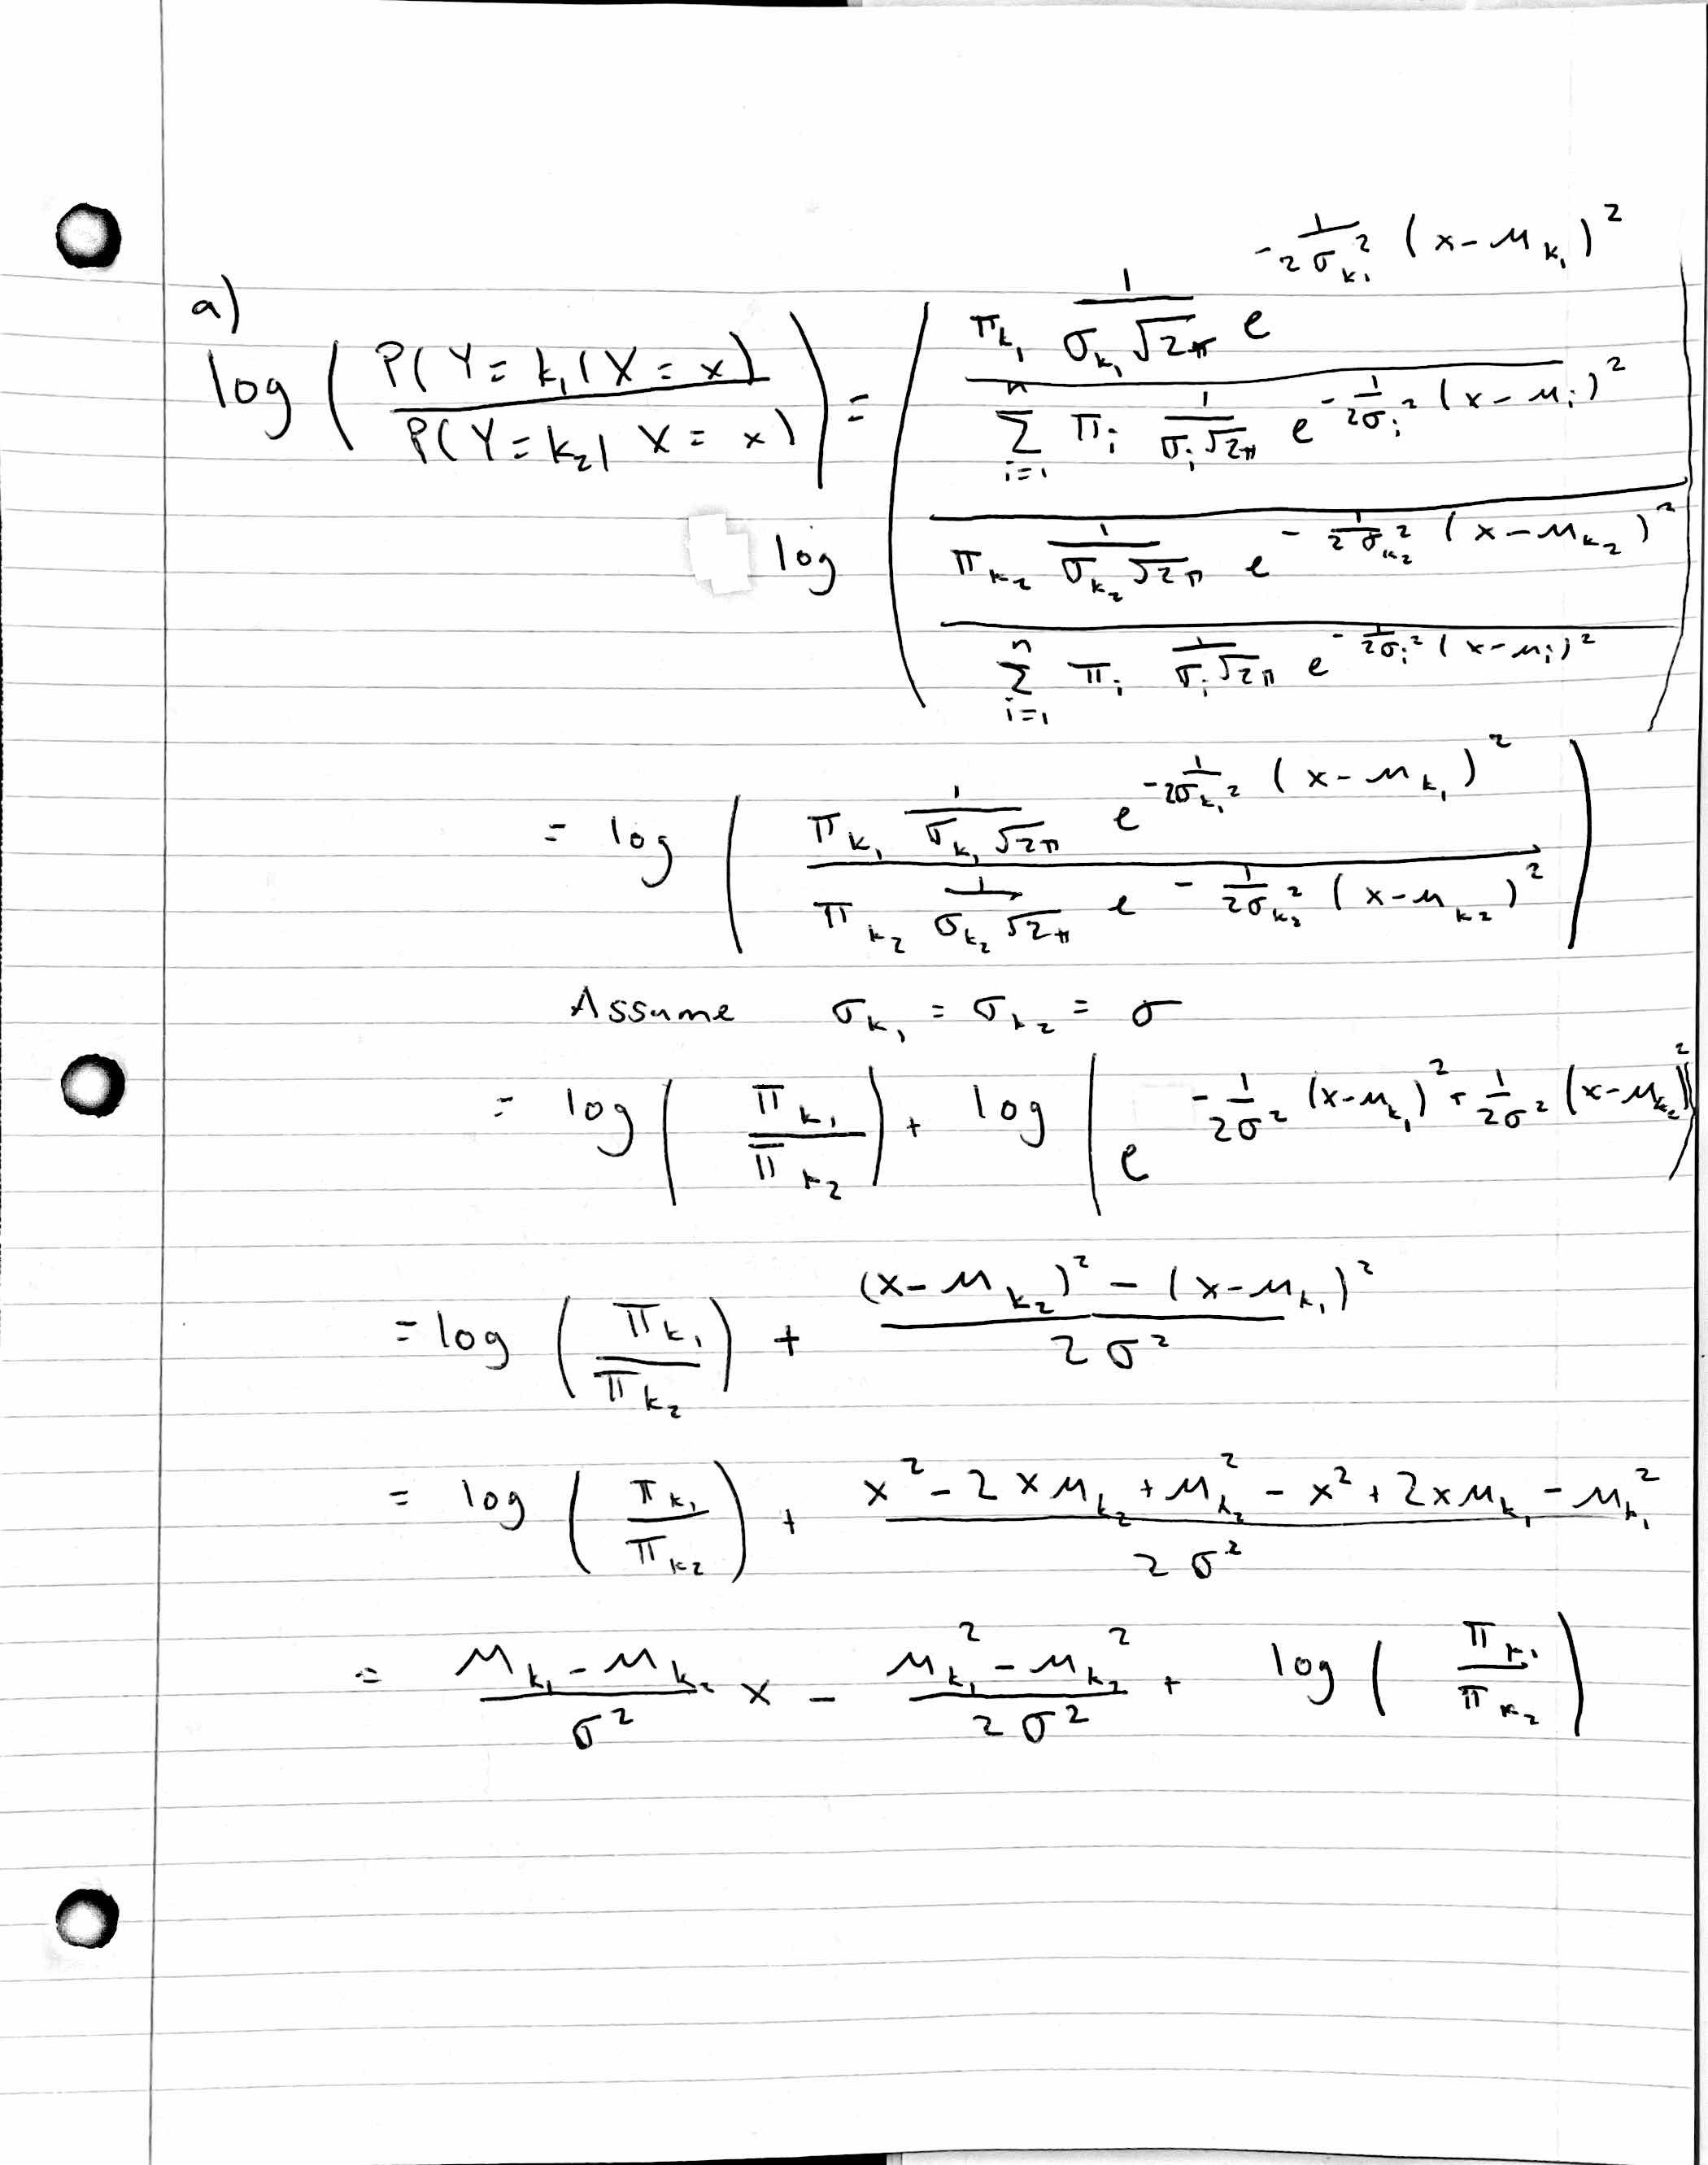 a)
log ( P(Y=k₁|X=x) / P(Y=k₂|X=x) ) =
log ( ( π_{k₁} 1/(σ_{k₁}√2π) e^{-1/(2σ_{k₁}²) (x-μ_{k₁})²} / Σ_{i=1}^{n} π_i 1/(σ_i√2π) e^{-1/(2σ_i²) (x-μ_i)²} ) / ( π_{k₂} 1/(σ_{k₂}√2π) e^{-1/(2σ_{k₂}²) (x-μ_{k₂})²} / Σ_{i=1}^{n} π_i 1/(σ_i√2π) e^{-1/(2σ_i²) (x-μ_i)²} ) )
= log ( π_{k₁} 1/(σ_{k₁}√2π) e^{-1/(2σ_{k₁}²) (x-μ_{k₁})²} / π_{k₂} 1/(σ_{k₂}√2π) e^{-1/(2σ_{k₂}²) (x-μ_{k₂})²} )
Assume σ_{k₁} = σ_{k₂} = σ
= log ( π_{k₁} / π_{k₂} ) + log ( e^{-1/(2σ²) (x-μ_{k₁})² + 1/(2σ²) (x-μ_{k₂})²} )
= log ( π_{k₁} / π_{k₂} ) + ( (x-μ_{k₂})² - (x-μ_{k₁})² ) / 2σ²
= log ( π_{k₁} / π_{k₂} ) + ( x² - 2xμ_{k₂} + μ_{k₂}² - x² + 2xμ_{k₁} - μ_{k₁}² ) / 2σ²
= (μ_{k₁} - μ_{k₂}) / σ² x - (μ_{k₁}² - μ_{k₂}²) / 2σ² + log ( π_{k₁} / π_{k₂} )